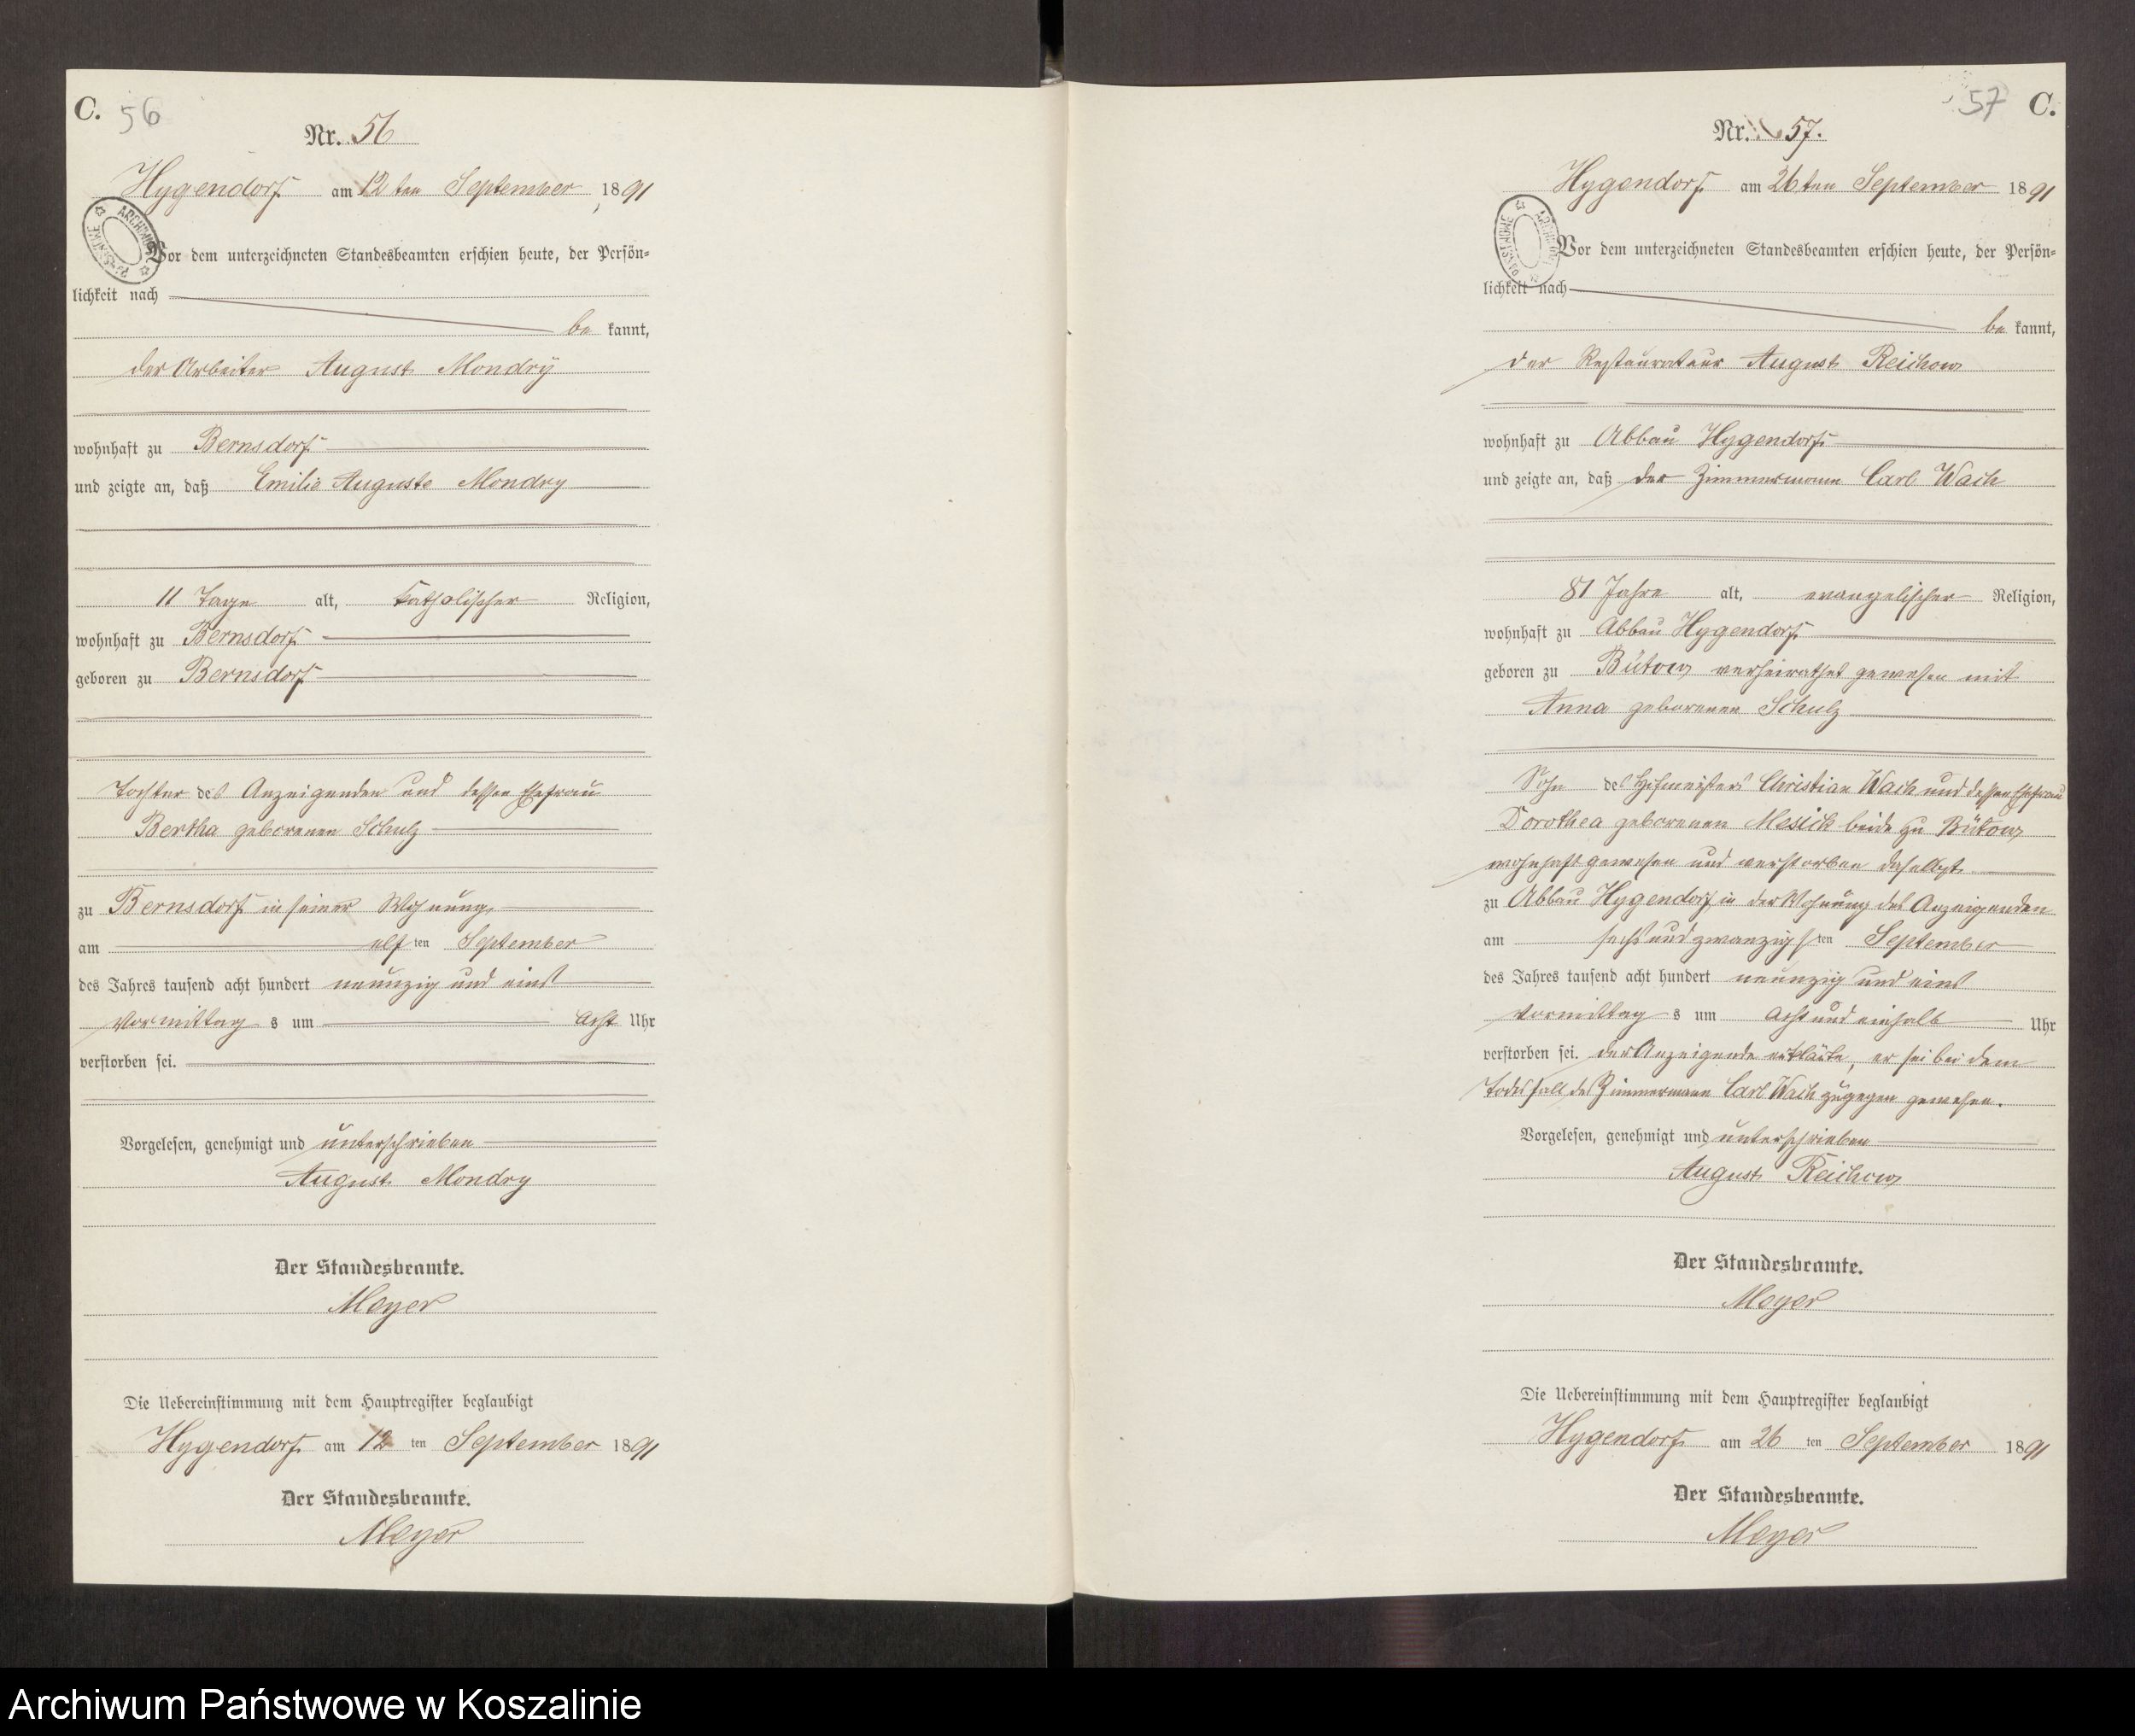 C. 56
Nr. 56
Hygendorf am 12ten September 1891
Vor dem unterzeichneten Standesbeamten erschien heute, der Persön-
lichkeit nach
be kannt,
der Arbeiter August Mondry
wohnhaft zu Bernsdorf
und zeigte an, daß Emilie Auguste Mondry
11 Tage alt, katholischer Religion,
wohnhaft zu Bernsdorf
geboren zu Bernsdorf
Tochter des Anzeigenden und dessen Ehefrau
Bertha geborenen Schulz
zu Bernsdorf in seiner Wohnung
am elf ten September
des Jahres tausend acht hundert neunzig und eins
Vormittag s um acht Uhr
verstorben sei.
Vorgelesen, genehmigt und unterschrieben
August Mondry
Der Standesbeamte.
Meyer
Die Uebereinstimmung mit dem Hauptregister beglaubigt
Hygendorf am 12 ten September 1891
Der Standesbeamte.
Meyer
57 C.
Nr. 57.
Hygendorf am 26ten September 1891
Vor dem unterzeichneten Standesbeamten erschien heute, der Persön-
lichkeit nach
be kannt,
der Restaurateur August Reichow
wohnhaft zu Abbau Hygendorf
und zeigte an, daß der Zimmermann Carl Wach
81 Jahre alt, evangelischer Religion,
wohnhaft zu Abbau Hygendorf
geboren zu Bütow verheirathet gewesen mit
Anna geborenen Schulz
Sohn des Christian Wach und dessen Ehefrau
Dorothea geborenen Mesick beide zu Bütow
wohnhaft gewesen und verstorben daselbst
zu Abbau Hygendorf in der Wohnung des Anzeigenden
am sechs und zwanzigsten September
des Jahres tausend acht hundert neunzig und eins
Vormittag s um acht und einhalb Uhr
verstorben sei. der Anzeigende erklärte, er sei bei dem
Todesfall des Zimmermann Carl Wach zugegen gewesen.
Vorgelesen, genehmigt und unterschrieben
August Reichow
Der Standesbeamte.
Meyer
Die Uebereinstimmung mit dem Hauptregister beglaubigt
Hygendorf am 26 ten September 1891
Der Standesbeamte.
Meyer
Archiwum Państwowe w Koszalinie